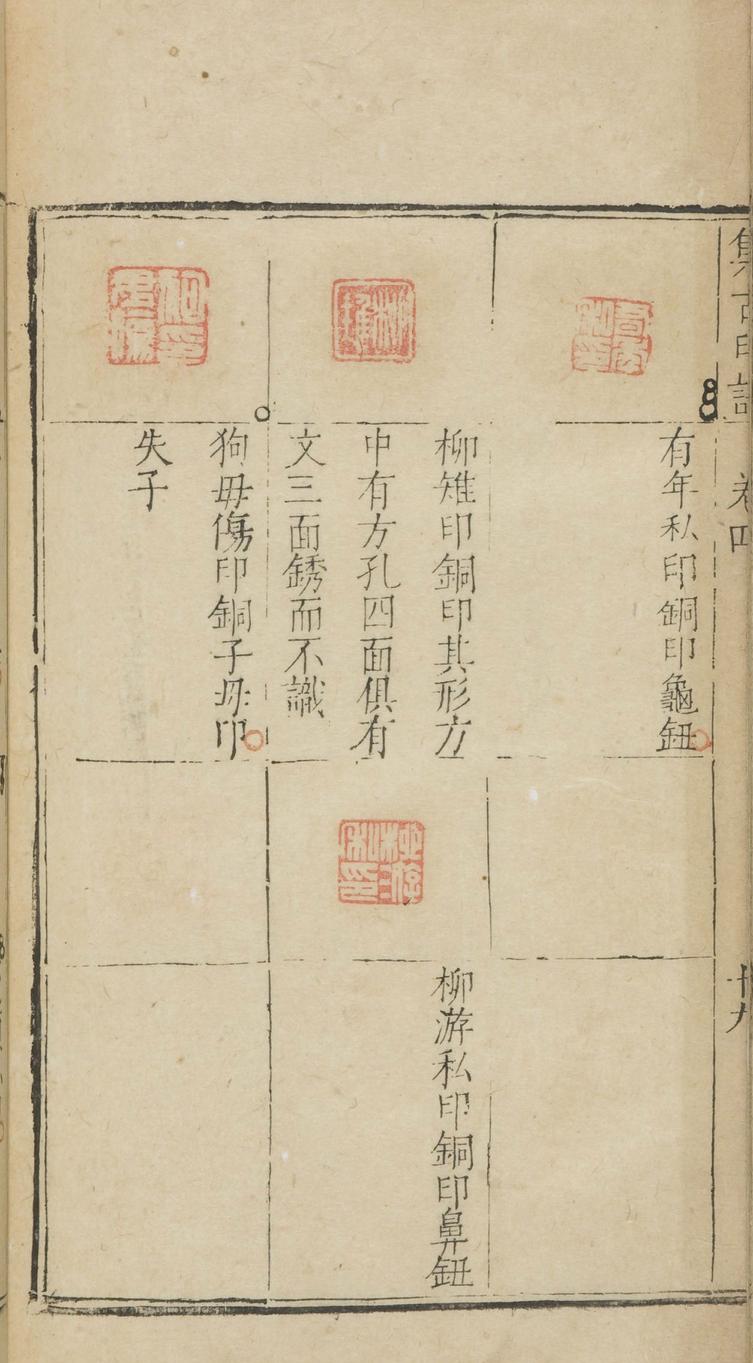 集古印譜 卷四 十九
有年私印銅印龜鈕
柳雉印銅印其形方
中有方孔四面俱有
文三面銹而不識
狗毋傷印銅子母印
失子
柳游私印
柳游私印銅印鼻鈕